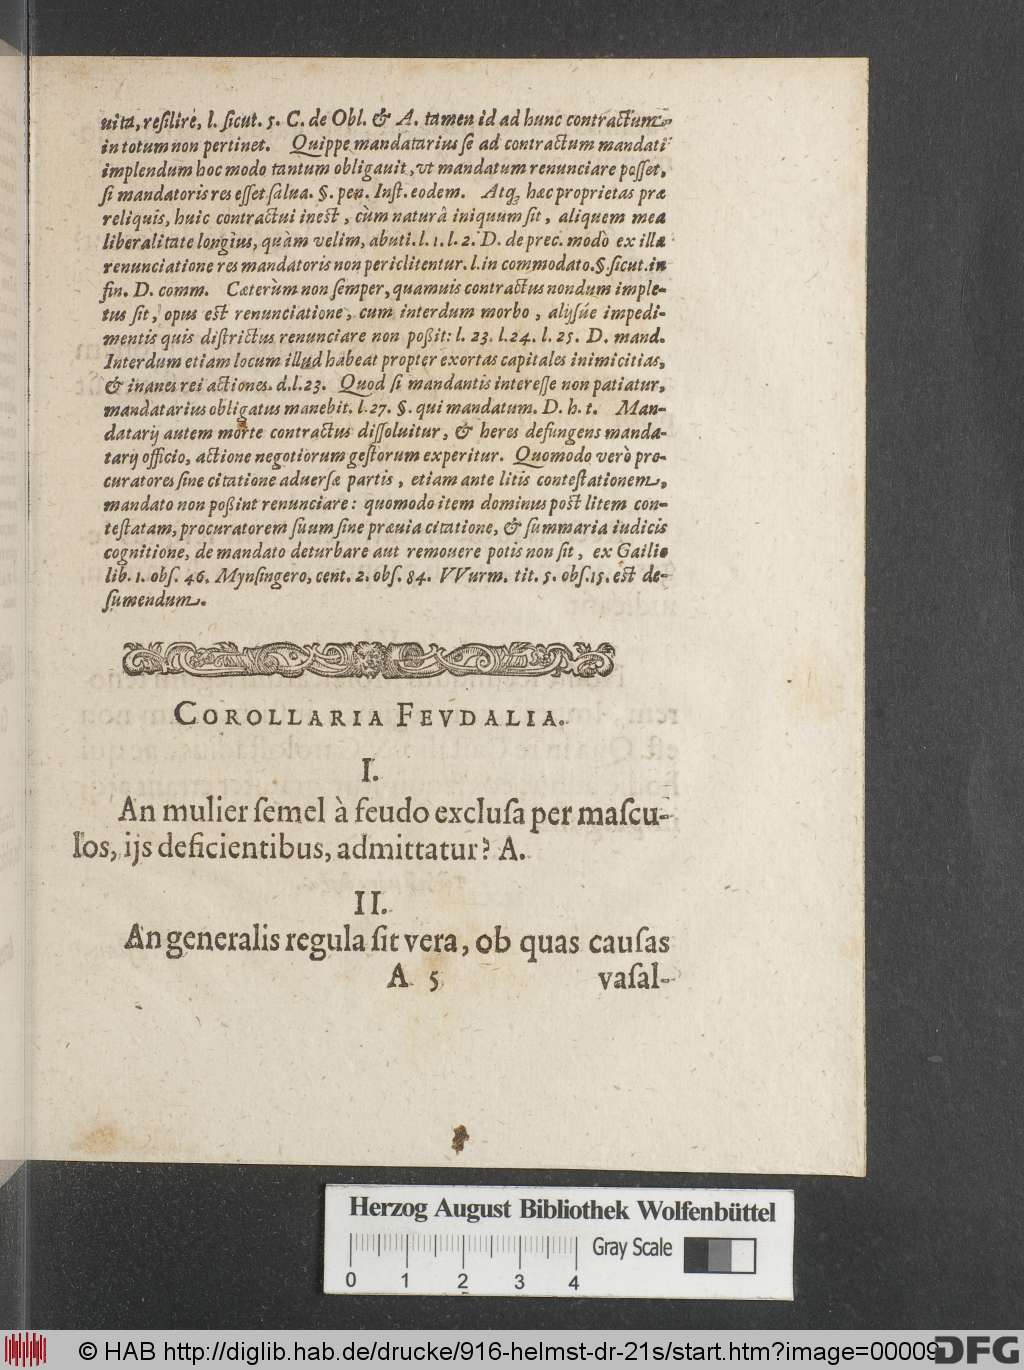 uita, reſilire, l. ſicut. 5. C. de Obl. & A. tamen id ad hunc contractum
in totum non pertinet. Quippe mandatarius ſe ad contractum mandati
implendum hoc modo tantum obligauit, vt mandatum renunciare poſſet,
ſi mandatoris res eſſet ſalua. §. pen. Inſt. eodem. Atq; hæc proprietas præ
reliquis, huic contractui inest, cùm naturâ iniquum ſit, aliquem mea
liberalitate longiùs, quàm velim, abuti. l. 1. l. 2. D. de prec. modò ex illa
renunciatione res mandatoris non periclitentur. l. in commodato. §. ſicut. in
fin. D. comm. Cæterùm non ſemper, quamuis contractus nondum imple-
tus ſit, opus est renunciatione, cum interdum morbo, alijſúe impedi-
mentis quis diſtrictus renunciare non poßit: l. 23. l. 24. l. 25. D. mand.
Interdum etiam locum illud habeat propter exortas capitales inimicitias,
& inanes rei actiones. d. l. 23. Quod ſi mandantis intereſſe non patiatur,
mandatarius obligatus manebit. l. 27. §. qui mandatum. D. h. t. Man-
datarij autem morte contractus diſſoluitur, & heres defungens manda-
tarij officio, actione negotiorum geſtorum experitur. Quomodo verò pro-
curatores ſine citatione aduerſæ partis, etiam ante litis conteſtationem,
mandato non poßint renunciare: quomodo item dominus post litem con-
teſtatam, procuratorem ſuum ſine præuia citatione, & ſummaria iudicis
cognitione, de mandato deturbare aut remouere potis non ſit, ex Gailio
lib. 1. obſ. 46. Mynſingero, cent. 2. obſ. 84. VVurm. tit. 5. obſ. 15. est de-
ſumendum.
COROLLARIA FEVDALIA.
I.
An mulier ſemel à feudo excluſa per maſcu-
los, ijs deficientibus, admittatur? A.
II.
An generalis regula ſit vera, ob quas cauſas
A 5 vaſal-
Herzog August Bibliothek Wolfenbüttel
Gray Scale
0 1 2 3 4
© HAB http://diglib.hab.de/drucke/916-helmst-dr-21s/start.htm?image=00009
DFG